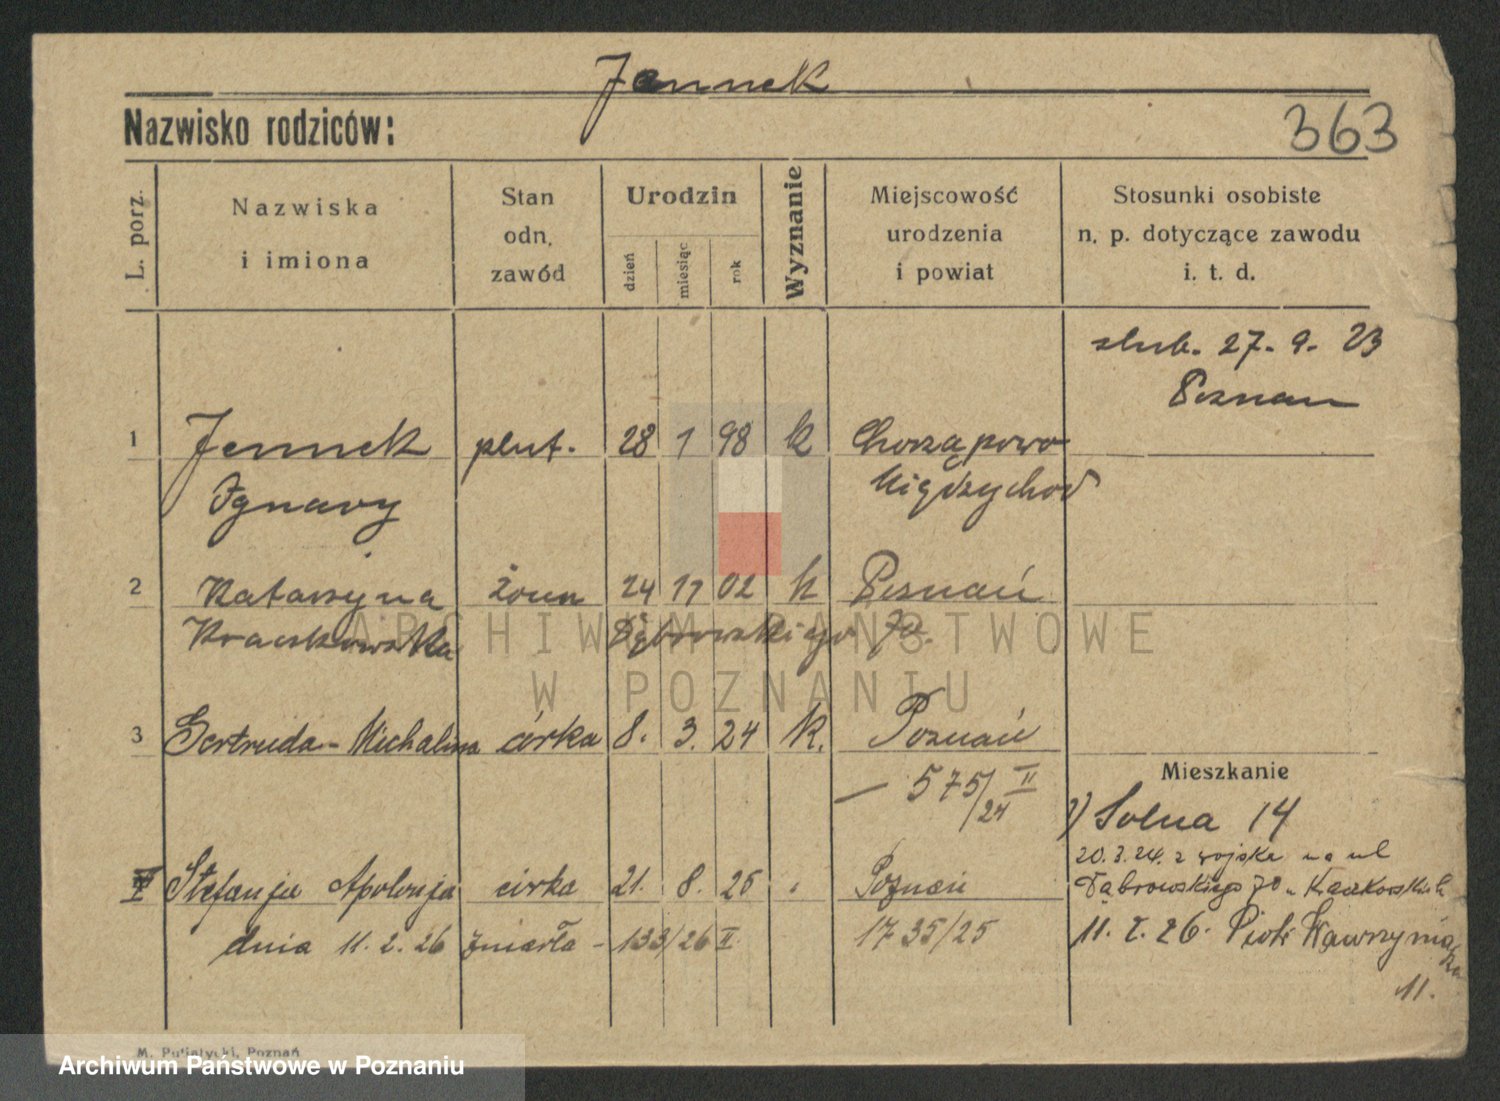 Jennek
Nazwisko rodziców:
363
L. porz.
Nazwiska
i imiona
Stan
odn.
zawód
Urodzin
dzień
miesiąc
rok
Wyznanie
Miejscowość
urodzenia
i powiat
Stosunki osobiste
n. p. dotyczące zawodu
i. t. d.
slub. 27. 9. 23
Poznan
1 Jennek plut. 28 1 98 k Chorzępowo
Ignacy Międzychod
2 Katarzyna żona 24 11 02 k Poznań
Kraczkowska Dąbrowskiego 70.
3 Gertruda-Michalina córka 8. 3. 24 k. Poznań
Mieszkanie
— 575/24 II
1) Solna 14
20.3.24. z wojska na ul
Stefanja Apolonja córka 21. 8. 25 Poznań
Dąbrowskiego 70
dnia 11. 2. 26 zmarła - 133/26 II 1735/25
11. 2. 26. Piotr Wawrzyniaka
11.
M. Putiatycki, Poznań
ARCHIWUM PAŃSTWOWE
W POZNANIU
Archiwum Państwowe w Poznaniu